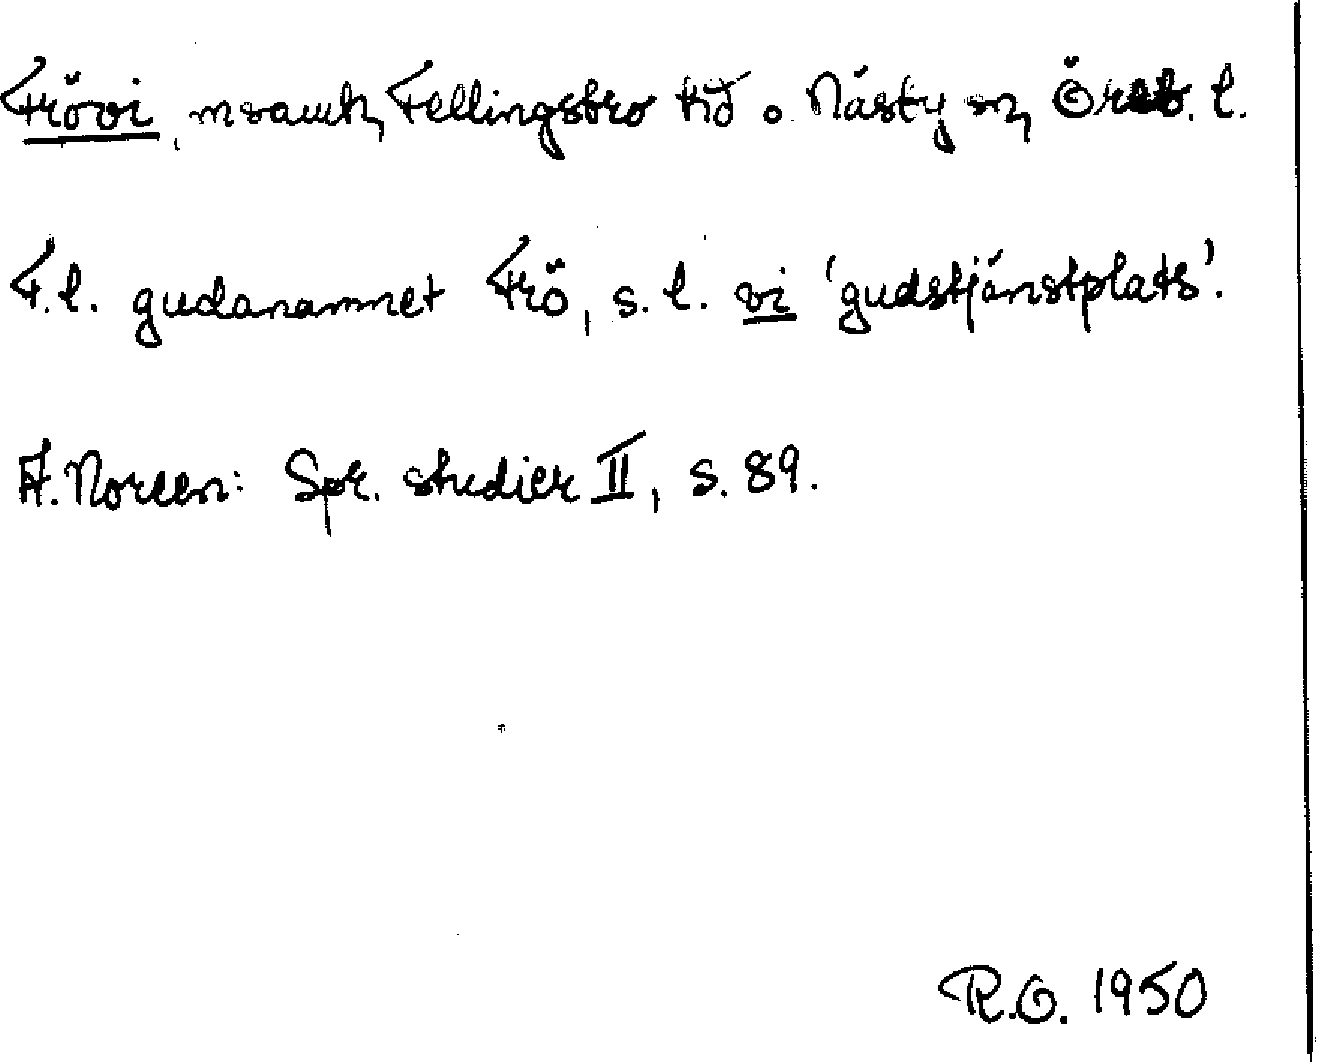 Frövi, msamh, Fellingsbro hd o. Näsby sn, Öreb. l.
F.l. gudanamnet Frö, s.l. vi 'gudstjänstplats'.
A. Noreen: Spr. studier II, s. 89.
R.O. 1950